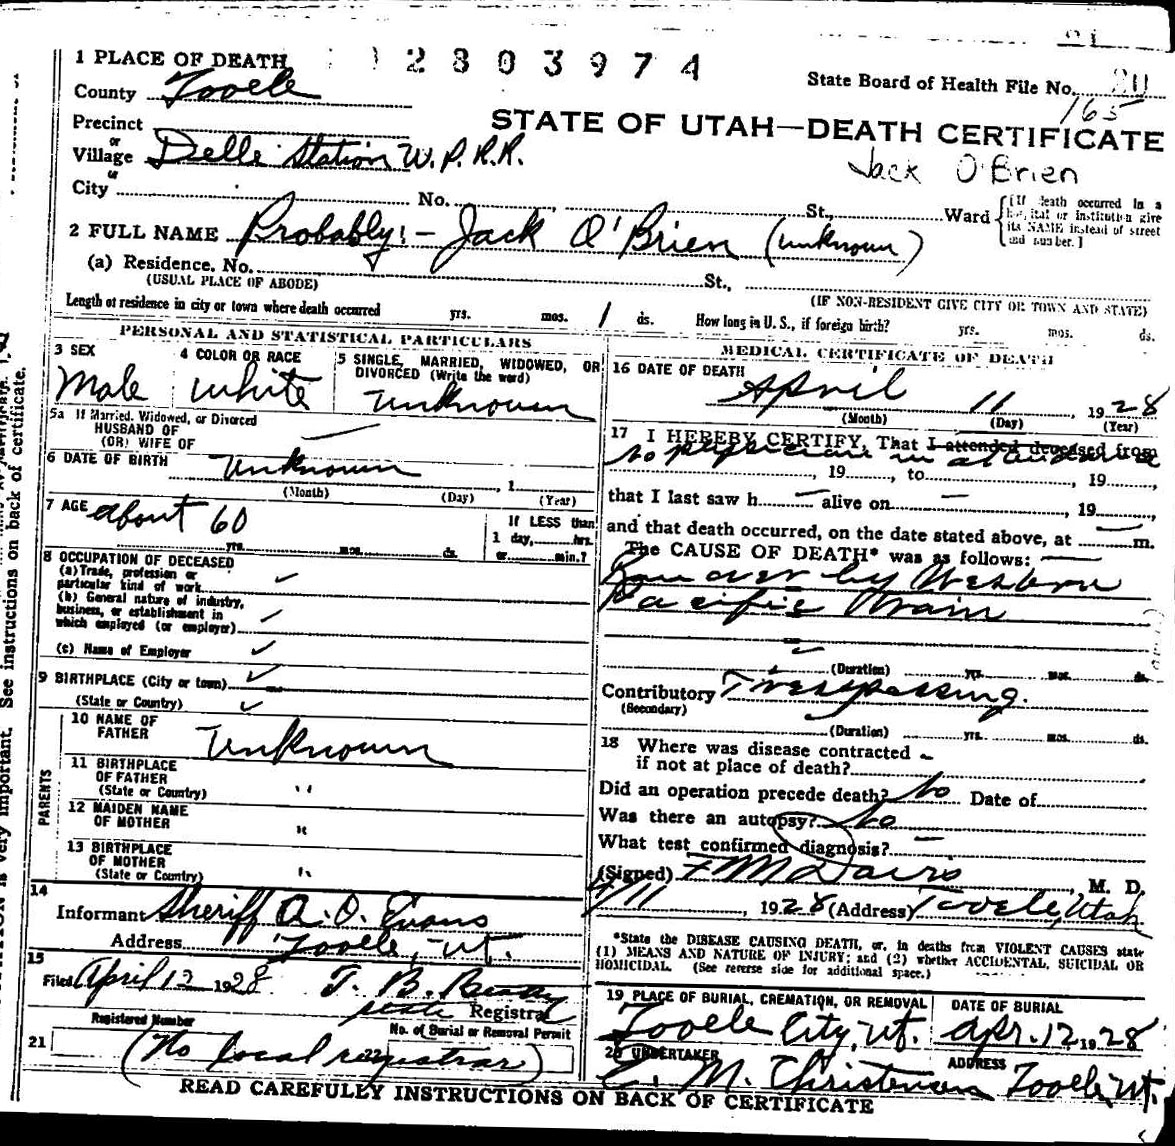 1 PLACE OF DEATH 2803974
County Tooele
State Board of Health File No. 20
165
STATE OF UTAH—DEATH CERTIFICATE
Precinct
or
Village Delle Station W.P.R.R.
Jack O'Brien
or
City No. St., Ward
[If death occurred in a hospital or institution give its NAME instead of street and number.]
2 FULL NAME Probably:- Jack O'Brien (unknown)
(a) Residence. No. St.,
(USUAL PLACE OF ABODE) (IF NON-RESIDENT GIVE CITY OR TOWN AND STATE)
Length of residence in city or town where death occurred yrs. mos. 1 ds. How long in U. S., if foreign birth? yrs. mos. ds.
PERSONAL AND STATISTICAL PARTICULARS
3 SEX Male
4 COLOR OR RACE White
5 SINGLE, MARRIED, WIDOWED, OR DIVORCED (Write the word) Unknown
5a If Married, Widowed, or Divorced
HUSBAND OF
(OR) WIFE OF
6 DATE OF BIRTH Unknown , 1
(Month) (Day) (Year)
7 AGE about 60
yrs. mos. ds.
If LESS than
1 day, hrs.
or min.?
8 OCCUPATION OF DECEASED
(a) Trade, profession or
particular kind of work
(b) General nature of industry,
business, or establishment in
which employed (or employer)
(c) Name of Employer
9 BIRTHPLACE (City or town)
(State or Country)
PARENTS
10 NAME OF
FATHER Unknown
11 BIRTHPLACE
OF FATHER
(State or Country) "
12 MAIDEN NAME
OF MOTHER "
13 BIRTHPLACE
OF MOTHER
(State or Country) "
14
Informant Sheriff A. O. Evans
Address Tooele, Ut.
15
Filed April 12 1928 T. B. Beatty
state Registrar
Registered Number No. of Burial or Removal Permit
21 (No local registrar) 22
MEDICAL CERTIFICATE OF DEATH
16 DATE OF DEATH
April 11, 1928
(Month) (Day) (Year)
17 I HEREBY CERTIFY, That I attended deceased from
no physician in attendance
, 19 , to , 19 ,
that I last saw h alive on , 19 ,
and that death occurred, on the date stated above, at m.
The CAUSE OF DEATH* was as follows:
Run over by Western
Pacific Train
(Duration) yrs. mos. ds.
Contributory Trespassing.
(Secondary)
(Duration) yrs. mos. ds.
18 Where was disease contracted
if not at place of death?
Did an operation precede death? No Date of
Was there an autopsy? No
What test confirmed diagnosis? —
(Signed) F M Davis, M. D.
4/11, 1928 (Address) Tooele, Utah
*State the DISEASE CAUSING DEATH, or, in deaths from VIOLENT CAUSES state
(1) MEANS AND NATURE OF INJURY; and (2) whether ACCIDENTAL, SUICIDAL OR
HOMICIDAL. (See reverse side for additional space.)
19 PLACE OF BURIAL, CREMATION, OR REMOVAL DATE OF BURIAL
Tooele City, Ut. Apr. 12 1928
20 UNDERTAKER ADDRESS
E. M. Christensen Tooele, Ut.
READ CAREFULLY INSTRUCTIONS ON BACK OF CERTIFICATE
is very important. See instructions on back of certificate.